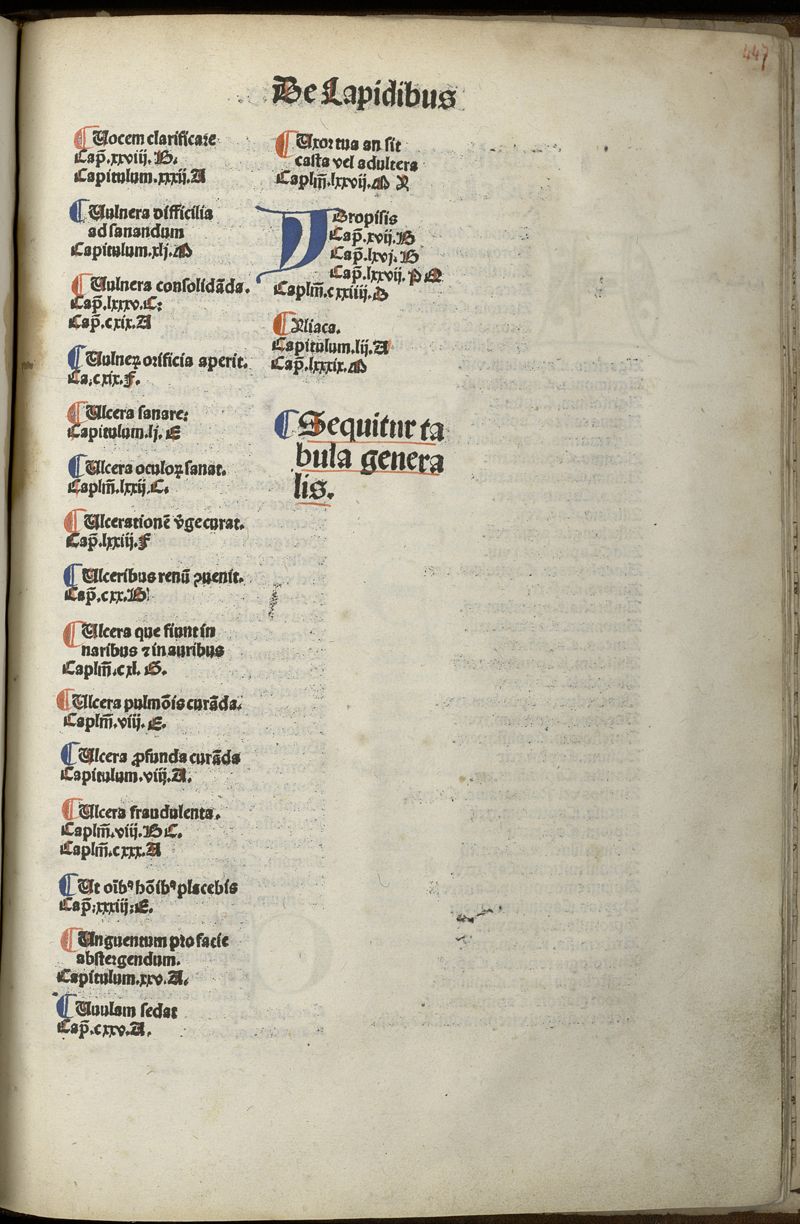 447
De Lapidibus
¶ Uocem clarificare
Cap̃.xxviij.B.
Capitulum.xxxij.A
¶ Uulnera difficilia
ad sanandum
Capitulum.xlj.M
¶ Uulnera consolidãda.
Cap̃.lxxxv.C.
Cap̃.cxix.A
¶ Uulneꝝ orificia aperit.
Ca.cxix.f.
¶ Ulcera sanare.
Capitulum.lj.E
¶ Ulcera oculoꝝ sanat.
Caplm̃.lxxij.C.
¶ Ulcerationẽ v̓ge curat.
Cap̃.lxxiij.f
¶ Ulceribus renũ ꝯuenit.
Cap̃.cxx.B
¶ Ulcera que fiunt in
naribus ⁊ in auribus
Caplm̃.cxl.G.
¶ Ulcera pulmõis curãda.
Caplm̃.viij.E.
¶ Ulcera ꝓfunda curãda
Capitulum.viij.A.
¶ Ulcera fraudulenta.
Caplm̃.viij.B C.
Caplm̃.cxxx.A
¶ Ut oĩbꝰ hõĩbꝰ placebis
Cap̃.xxxiij.E.
¶ Unguentum pro facie
abstergendum.
Capitulum.xxv.A.
¶ Uuulam sedat
Cap̃.cxxv.A.
¶ Uxor tua an sit
casta vel adultera
Caplm̃.lxxvij.M X
YDropisis
Cap̃.xvij.B
Cap̃.lxvj.B
Cap̃.lxxvij.P Q
Caplm̃.cxxiiij.D
¶ Yliaca.
Capitulum.lij.A
Cap̃.lxxxix.M
¶ Sequitur ta
bula genera
lis.